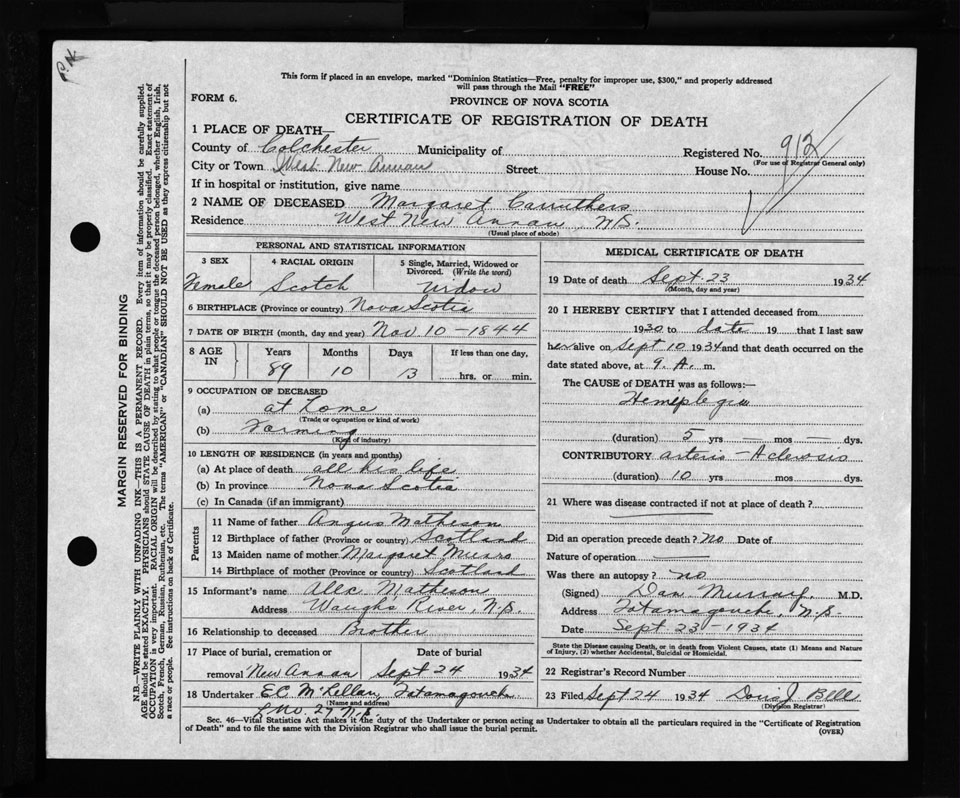 P.N.
This form if placed in an envelope, marked "Dominion Statistics—Free, penalty for improper use, $300," and properly addressed
will pass through the Mail "FREE"
FORM 6.
PROVINCE OF NOVA SCOTIA
CERTIFICATE OF REGISTRATION OF DEATH
1 PLACE OF DEATH—
County of Colchester Municipality of Registered No. 912
(For use of Registrar General only)
City or Town West New Annan Street House No.
If in hospital or institution, give name
2 NAME OF DECEASED Margaret Carruthers
Residence West New Annan, N.S.
(Usual place of abode)
PERSONAL AND STATISTICAL INFORMATION
3 SEX 4 RACIAL ORIGIN 5 Single, Married, Widowed or Divorced. (Write the word)
Female Scotch Widow
6 BIRTHPLACE (Province or country) Nova Scotia
7 DATE OF BIRTH (month, day and year) Nov. 10 - 1844
8 AGE IN Years Months Days If less than one day,
89 10 13 hrs. or min.
9 OCCUPATION OF DECEASED
(a) at Home
(Trade or occupation or kind of work)
(b) Farming
(Kind of industry)
10 LENGTH OF RESIDENCE (in years and months)
(a) At place of death all his life
(b) In province Nova Scotia
(c) In Canada (if an immigrant)
Parents
11 Name of father Angus Matheson
12 Birthplace of father (Province or country) Scotland
13 Maiden name of mother Margaret Munro
14 Birthplace of mother (Province or country) Scotland
15 Informant's name Alex Matheson
Address Waughs River, N.S.
16 Relationship to deceased Brother
17 Place of burial, cremation or removal Date of burial
New Annan Sept 24 1934
18 Undertaker E.C. McKellan, Tatamagouche
(Name and address)
No. 27 N.S.
MEDICAL CERTIFICATE OF DEATH
19 Date of death Sept. 23 1934
(Month, day and year)
20 I HEREBY CERTIFY that I attended deceased from
1930 to date 19 that I last saw
her alive on Sept 10 1934 and that death occurred on the
date stated above, at 9. A. m.
The CAUSE of DEATH was as follows:—
Hemiplegia
(duration) 5 yrs — mos — dys.
CONTRIBUTORY arterio - sclerosis
(duration) 10 yrs mos dys.
21 Where was disease contracted if not at place of death?
Did an operation precede death? No Date of
Nature of operation
Was there an autopsy? no
(Signed) Dan Murray M.D.
Address Tatamagouche, N.S.
Date Sept 23 - 1934
State the Disease causing Death, or in death from Violent Causes, state (1) Means and Nature
of Injury, (2) whether Accidental, Suicidal or Homicidal.
22 Registrar's Record Number
23 Filed Sept 24 1934 Doris J. Bell
(Division Registrar)
Sec. 46—Vital Statistics Act makes it the duty of the Undertaker or person acting as Undertaker to obtain all the particulars required in the "Certificate of Registration
of Death" and to file the same with the Division Registrar who shall issue the burial permit.
(OVER)
MARGIN RESERVED FOR BINDING
N.B.—WRITE PLAINLY WITH UNFADING INK—THIS IS A PERMANENT RECORD. Every item of information should be carefully supplied.
AGE should be stated EXACTLY. PHYSICIANS should STATE CAUSE OF DEATH in plain terms, so that it may be properly classified. Exact statement of
OCCUPATION is very important. RACIAL ORIGIN will be described by stating to what people or tongue the deceased person belonged, whether English, Irish,
Scotch, French, German, Russian, Ruthenian, etc. The terms "AMERICAN" or "CANADIAN" SHOULD NOT BE USED as they express citizenship but not
a race or people. See instructions on back of Certificate.